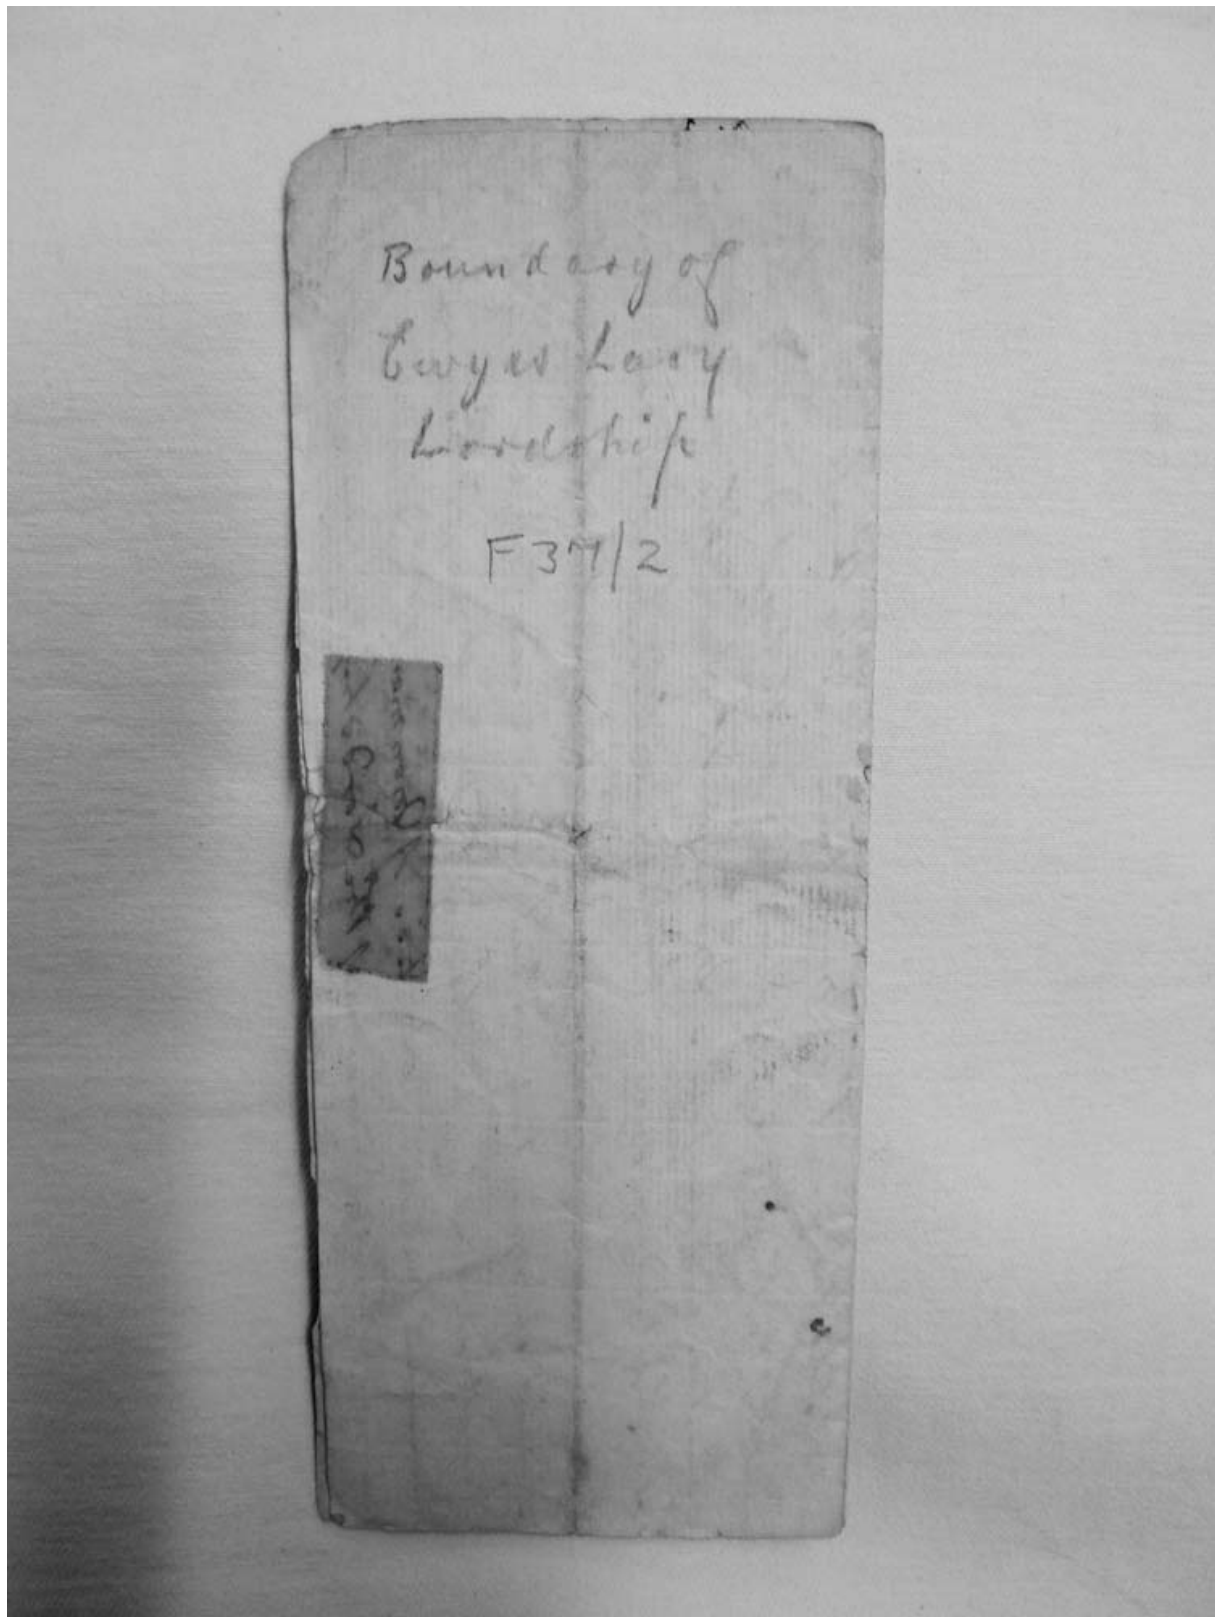 Boundary of
Ewyas Lacy
Lordship
F37/2